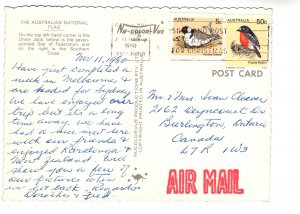 THE AUSTRALIAN NATIONAL
FLAG
On the top left hand corner is the
Union Jack, below is the seven-
pointed Star of Federation, and
on the right is the Southern
Cross.
Nov 11, 1980
Have just completed a
week in Melbourne &
are headed for Sydney
We have enjoyed our
trip but it's a long
time away. We have
had a nice visit
with our friends &
enjoyed Raratonga &
New Zealand. Will
have you a few of
our pictures when
we get back. Regards
Dorothy & Fred
Nu-color-Vue
1980
AUSTRALIA
6c
AUSTRALIA
50c
POST CARD
Mr & Mrs Ivan Cleaver
2163 Deyncourt Dr.
Burlington, Ontario
Canada
L7R 1W3
AIR MAIL